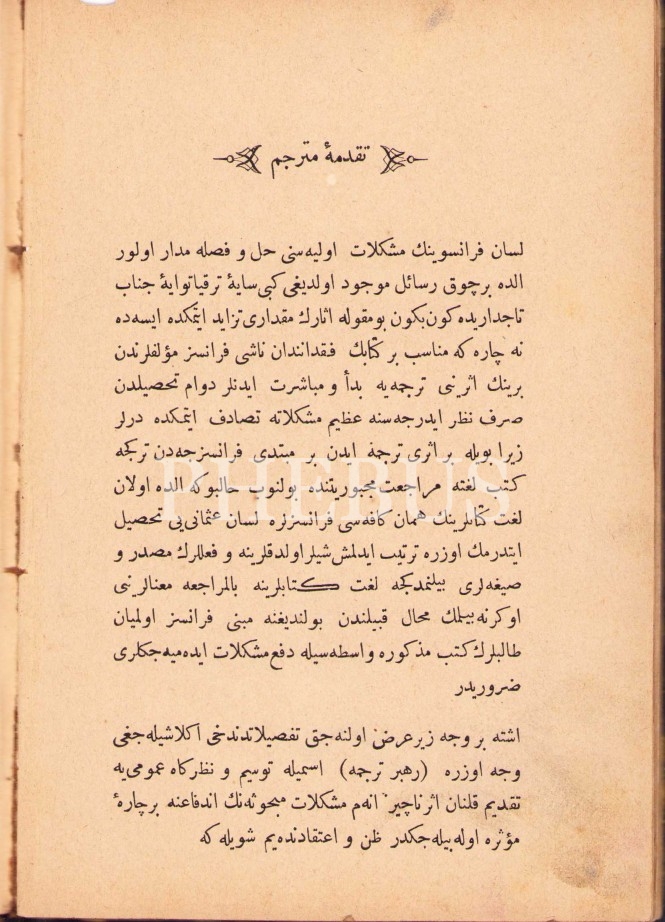 تقدمهٔ مترجم
لسان فرانسوینك مشكلات اولیه‌سنی حل و فصله مدار اولور
الده برچوق رسائل موجود اولدیغی كبی سایهٔ ترقیاتوایهٔ جناب
تاجداریده كون‌بكون بومقوله اثارك مقداری تزاید ایتمكده ایسه‌ده
نه چاره كه مناسب بر كتابك فقداندان ناشی فرانسز مؤلفلرندن
برینك اثرینی ترجمه‌یه بدأ و مباشرت ایدنلر دوام تحصیلدن
صرف نظر ایدرجه‌سنه عظیم مشكلاته تصادف ایتمكده درلر
زیرا بویله بر اثری ترجمه ایدن بر مبتدی فرانسزجه‌دن تركجه
كتب لغته مراجعت مجبوریتنده بولنوب حالبوكه الده اولان
لغت كتابلرینك همان كافه‌سی فرانسزلره لسان عثمانی‌یی تحصیل
ایتدرمك اوزره ترتیب ایدلمش شیلر اولدقلرینه و فعللرك مصدر و
صیغه‌لری بیلنمدكجه لغت كتابلرینه بالمراجعه معنالرینی
اوكرنه‌بیلمك محال قبیلندن بولندیغنه مبنی فرانسز اولمیان
طالبلرك كتب مذكوره واسطه‌سیله دفع مشكلات ایده‌میه‌جكلری
ضروریدر
اشته بر وجه زیر عرض اولنه‌جق تفصیلاتدندخی اكلاشیله‌جغی
وجه اوزره (رهبر ترجمه) اسمیله توسیم و نظركاه عمومی‌یه
تقدیم قلنان اثرناچیز انه‌م مشكلات مبحوثه‌نك اندفاعنه برچارهٔ
مؤثره اوله‌بیله‌جكدر ظن و اعتقادنده‌یم شویله كه
PHEBUS